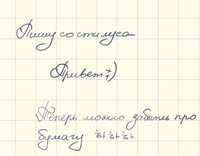 Пишу со стилуса
Привет;)
Теперь можно забыть про
бумагу 하하하